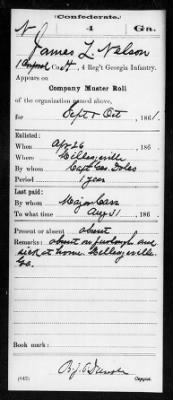 Confederate.
N 4 Ga.
James L. Nelson
1 Corporal Co. H, 4 Reg't Georgia Infantry.
Appears on
Company Muster Roll
of the organization named above,
for Sept & Oct, 1861.
Enlisted:
When Apr 26, 186 .
Where Milledgeville
By whom Capt Geo. Doles
Period 1 year
Last paid:
By whom Major Carr
To what time Aug 31, 186 .
Present or absent absent
Remarks: absent on furlough and
sick at home Milledgeville.
Ga.
Book mark:
(642)
Copyist.